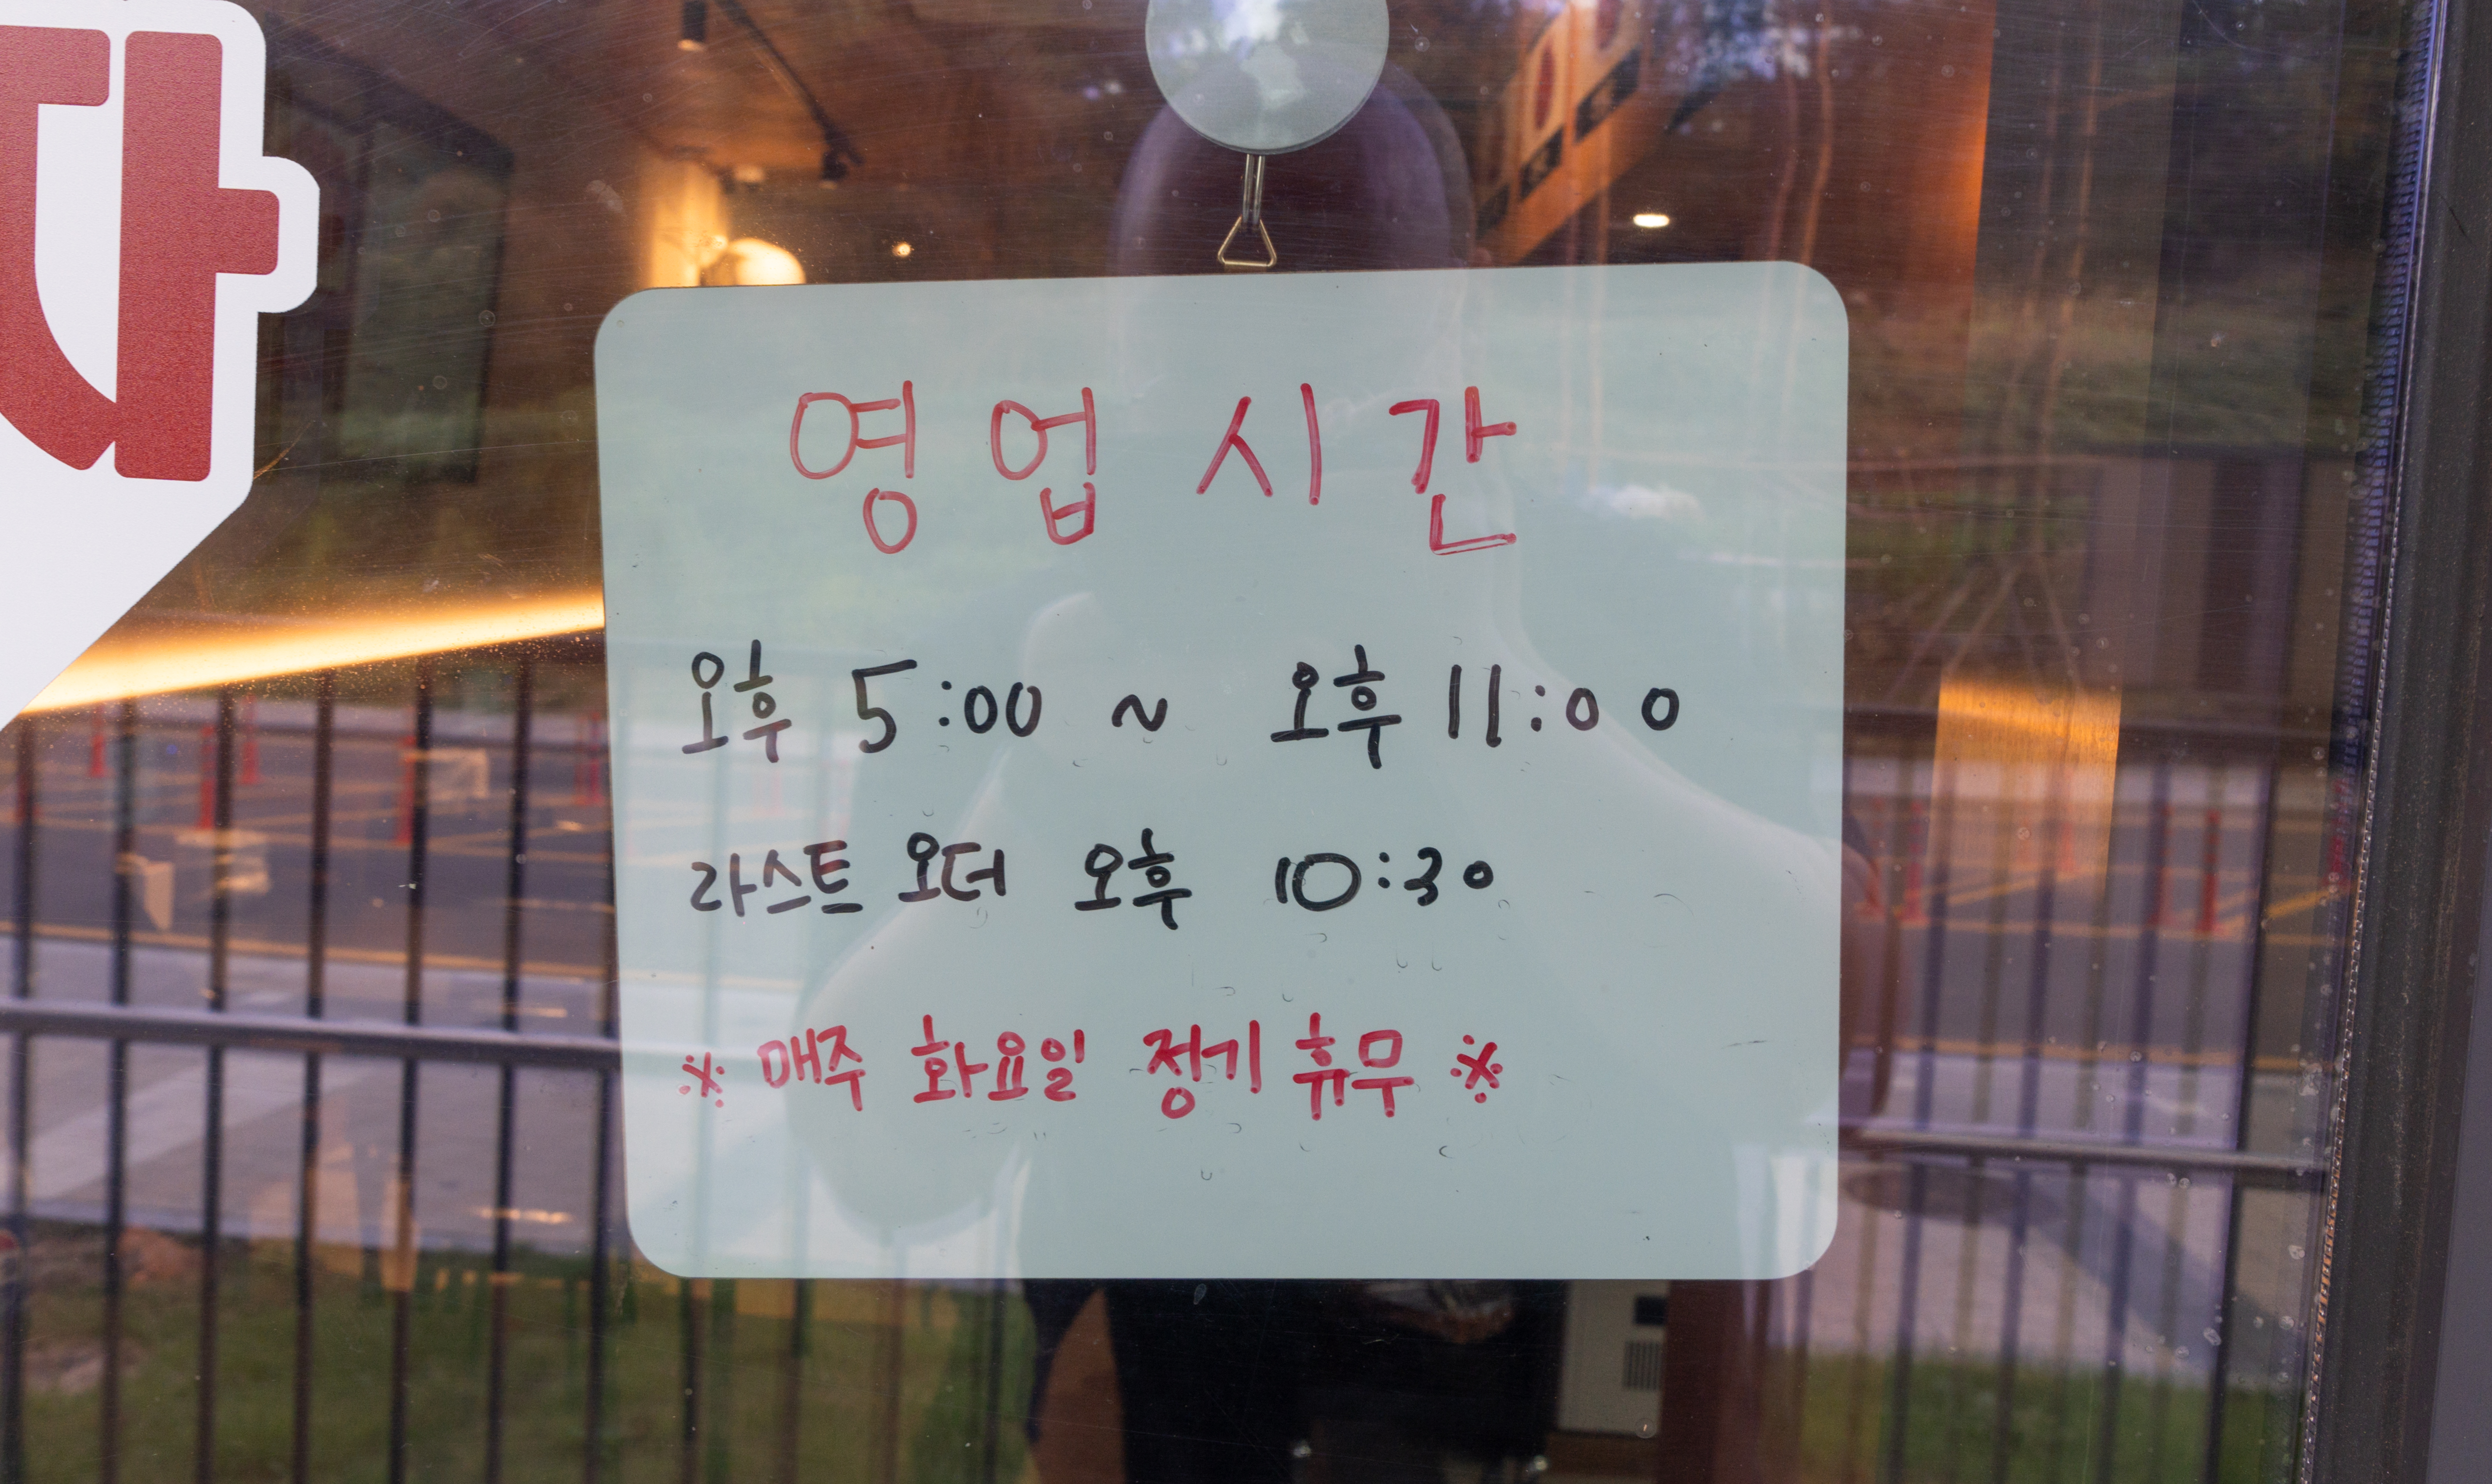 영업시간
오후 5:00 ~ 오후 11:00
라스트 오더 오후 10:30
※ 매주 화요일 정기 휴무 ※